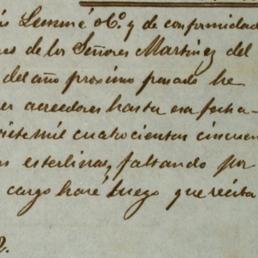 is Lemmé & Cº. y de conformidad
es de los Señores Martinez del
del año próximo pasado he
es acreedores hasta esa fecha
siete mil cuatrocientas cincuen
as esterlinas, faltando por
cargo haré luego que reciba